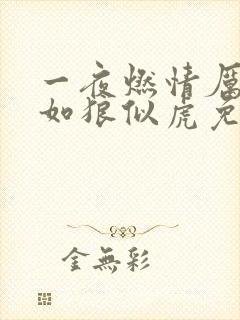 一夜燃情厲
如狼似虎免
金無彩